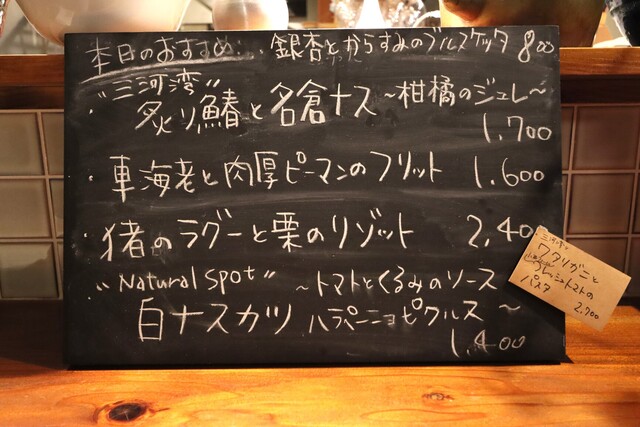 本日のおすすめ・・ 銀杏とからすみのブルスケッタ 800
"三河湾"
・炙り鰆と名倉ナス〜柑橘のジュレ〜
1.700
・車海老と肉厚ピーマンのフリット 1.600
・猪のラグーと栗のリゾット 2.40
"Natural Spot" 〜トマトとくるみのソース
白ナスカツ ハラペーニョピクルス〜
1.400
ワタリガニと
フレッシュトマトの
パスタ
2.700